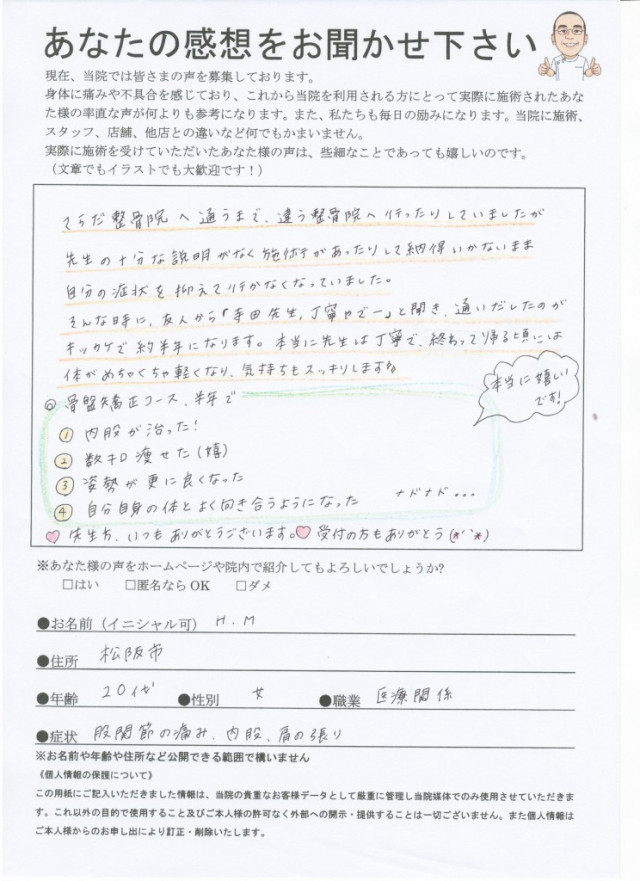 あなたの感想をお聞かせ下さい
現在、当院では皆さまの声を募集しております。
身体に痛みや不具合を感じており、これから当院を利用される方にとって実際に施術されたあな
た様の率直な声が何よりも参考になります。また、私たちも毎日の励みになります。当院に施術、
スタッフ、店舗、他店との違いなど何でもかまいません。
実際に施術を受けていただいたあなた様の声は、些細なことであっても嬉しいのです。
（文章でもイラストでも大歓迎です！）
てらだ整骨院へ通うまで、違う整骨院へ行ったりしていましたが
先生の十分な説明がなく施術があったりして納得いかないまま
自分の症状を抑えて行かなくなっていました。
そんな時に、友人から「寺田先生、丁寧やでー」と聞き、通いだしたのが
キッカケで約半年になります。本当に先生は丁寧で、終わって帰る頃には
体がめちゃくちゃ軽くなり、気持ちもスッキリします♪
◎骨盤矯正コース、半年で
本当に嬉しい
です!
① 内股が治った!
② 数キロ痩せた(嬉)
③ 姿勢が更に良くなった
④ 自分自身の体とよく向き合うようになった ナドナド...
♡先生方、いつもありがとうございます。♡受付の方もありがとう(*´`*)
※あなた様の声をホームページや院内で紹介してもよろしいでしょうか?
□はい □匿名なら OK □ダメ
●お名前（イニシャル可） H.M
●住所 松阪市
●年齢 20代 ●性別 女 ●職業 医療関係
●症状 股関節の痛み、内股、肩の張り
※お名前や年齢や住所など公開できる範囲で構いません
《個人情報の保護について》
この用紙にご記入いただきました情報は、当院の貴重なお客様データとして厳重に管理し当院媒体でのみ使用させていただきま
す。これ以外の目的で使用すること及びご本人様の許可なく外部への開示・提供することは一切ございません。また個人情報は
ご本人様からのお申し出により訂正・削除いたします。